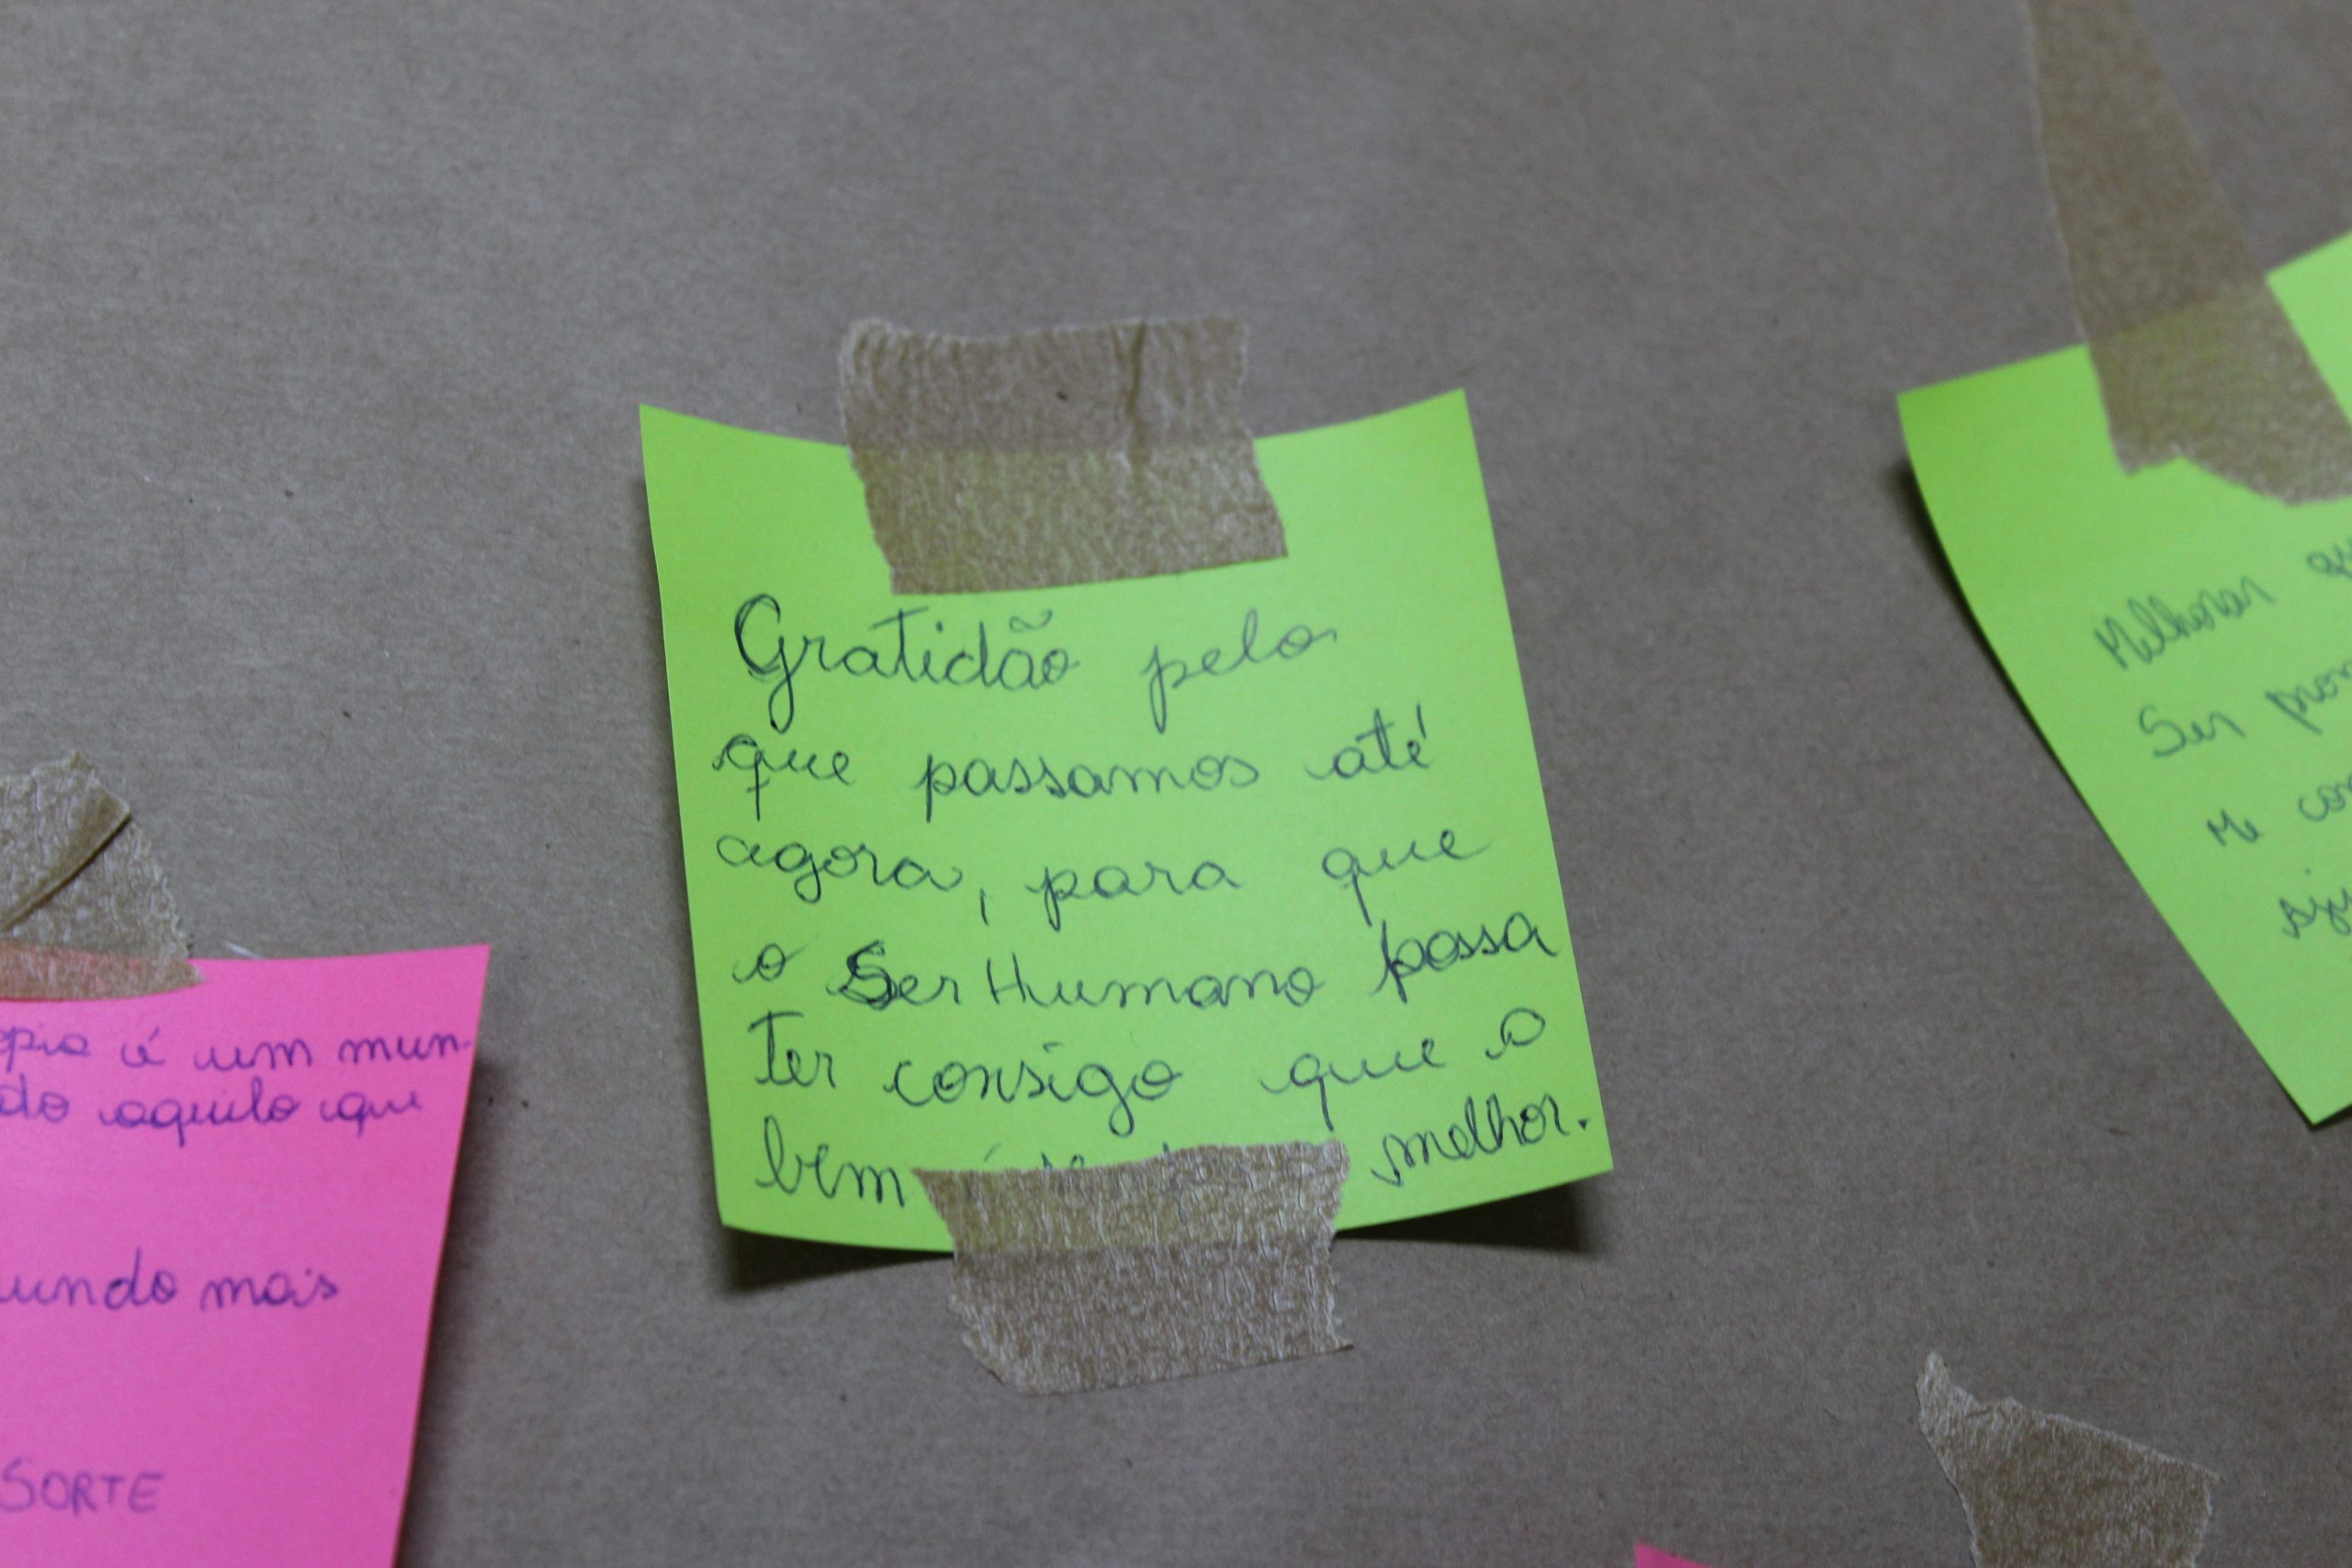 Gratidão pelo
que passamos até
agora, para que
o Ser Humano possa
Ter consigo que o
bem é sempre melhor.
é um mun-
aquilo que
mais
SORTE
Melhorar
Ser
Me